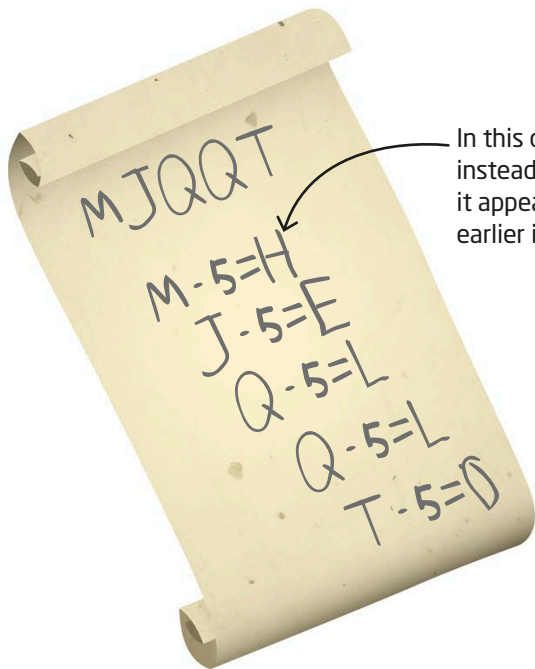 MJQQT
M - 5 = H
J - 5 = E
Q - 5 = L
Q - 5 = L
T - 5 = O
In this
instead
it appea
earlier i